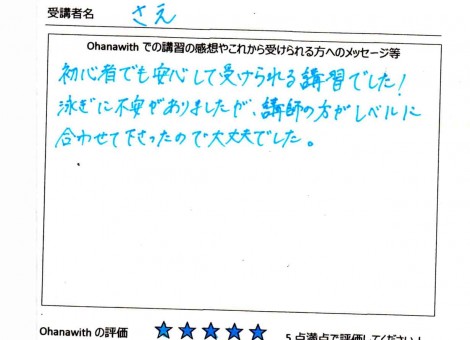 受講者名 さえ
Ohanawith での講習の感想やこれから受けられる方へのメッセージ等
初心者でも安心して受けられる講習でした!
泳ぎに不安がありましたが、講師の方がレベルに
合わせて下さったので大丈夫でした。
Ohanawith の評価 ★★★★★ 5点満点で評価してください!